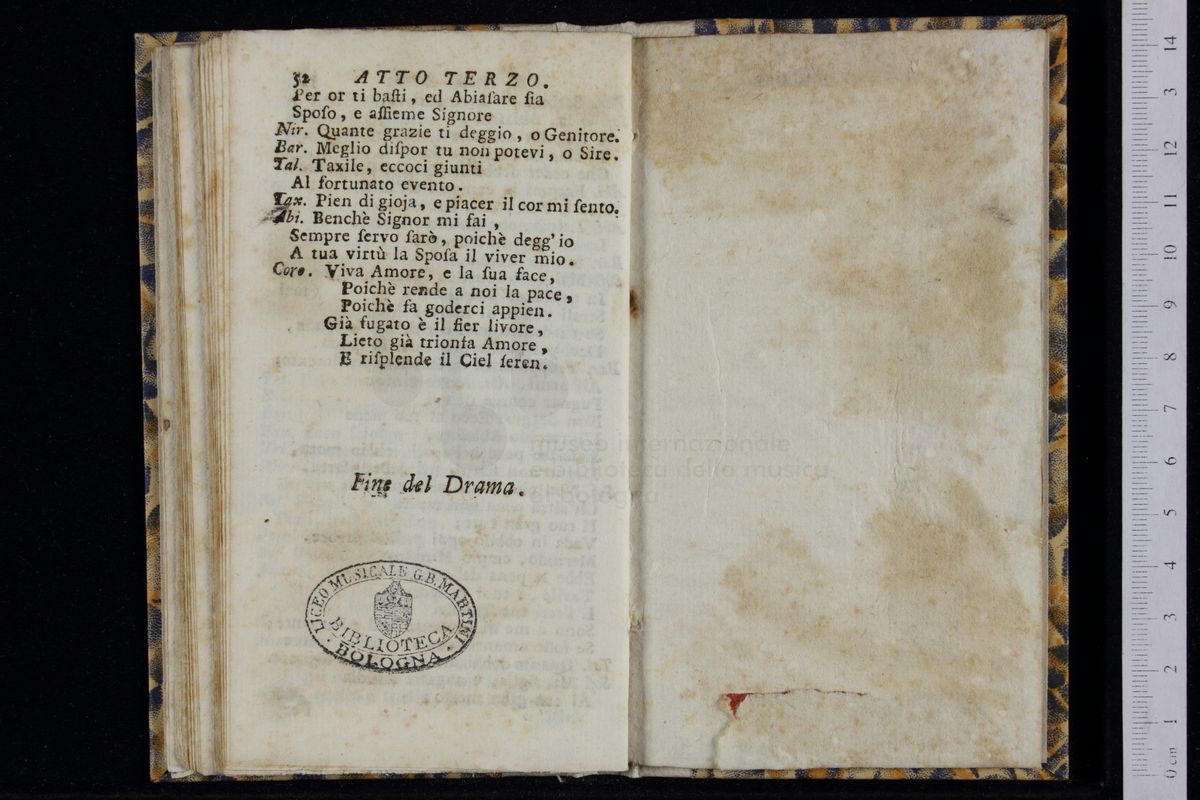 52 ATTO TERZO.
Per or ti baſti, ed Abiaſare ſia
Spoſo, e aſſieme Signore
Nir. Quante grazie ti deggio, o Genitore.
Bar. Meglio diſpor tu non potevi, o Sire.
Tal. Taxile, eccoci giunti
Al fortunato evento.
Tax. Pien di gioja, e piacer il cor mi ſento.
Abi. Benchè Signor mi fai,
Sempre ſervo ſarò, poichè degg' io
A tua virtù la Spoſa il viver mio.
Coro. Viva Amore, e la ſua face,
Poichè rende a noi la pace,
Poichè fa goderci appien.
Già fugato è il fier livore,
Lieto già trionfa Amore,
E riſplende il Ciel ſeren.
Fine del Drama.
LICEO MUSICALE G.B. MARTINI
BIBLIOTECA
· BOLOGNA ·
museo internazionale
e biblioteca della musica
di bologna
14
3
12
11
10
9
8
7
6
5
4
3
2
1
0 cm